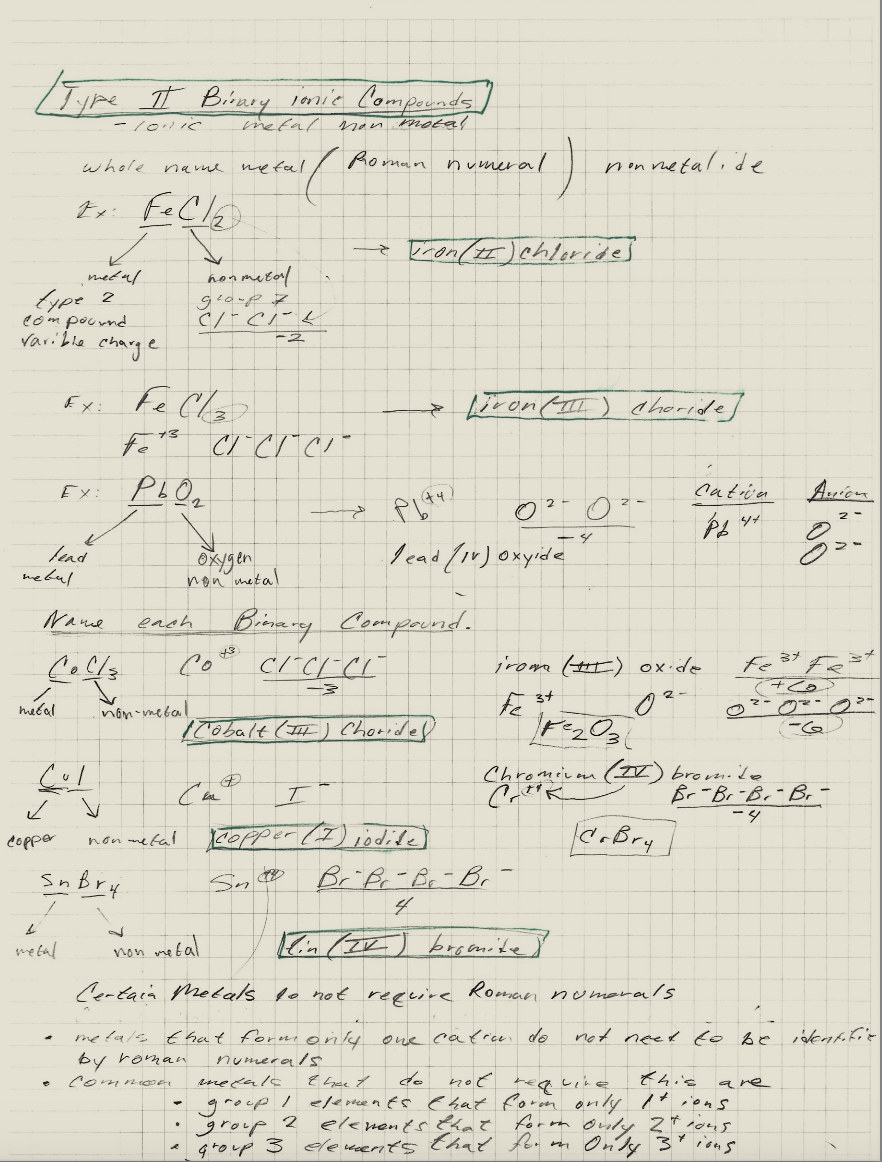 Type II Binary ionic Compounds
- ionic metal non metal
whole name metal (Roman numeral) nonmetal ide
Ex: FeCl2
→ iron (II) chloride
metal nonmetal
type 2 group 7
compound Cl- Cl-
varible charge -2
Ex: FeCl3 → iron (III) choride
Fe+3 Cl- Cl- Cl-
Ex: PbO2 → Pb+4 O2- O2-
-4
lead oxygen
metal non metal
lead (IV) oxyide
Cation Anion
Pb4+ O2-
O2-
Name each Binary Compound.
CoCl3 Co+3 Cl- Cl- Cl-
-3
metal non-metal
Cobalt (III) Choride
CuI Cu+ I-
copper non metal copper (I) iodide
SnBr4 Sn+4 Br- Br- Br- Br-
4
metal non metal tin (IV) bromite
iron (III) oxide Fe3+ Fe3+
+6
Fe3+ O2- O2- O2- O2-
-6
Fe2O3
Chromium (IV) bromite
Cr+4 Br- Br- Br- Br-
-4
CrBr4
Certain Metals do not require Roman numerals
• metals that form only one cation do not need to be identifie
by roman numerals
• common metals that do not require this are
• group 1 elements that form only 1+ ions
• group 2 elements that form only 2+ ions
• group 3 elements that form Only 3+ ions